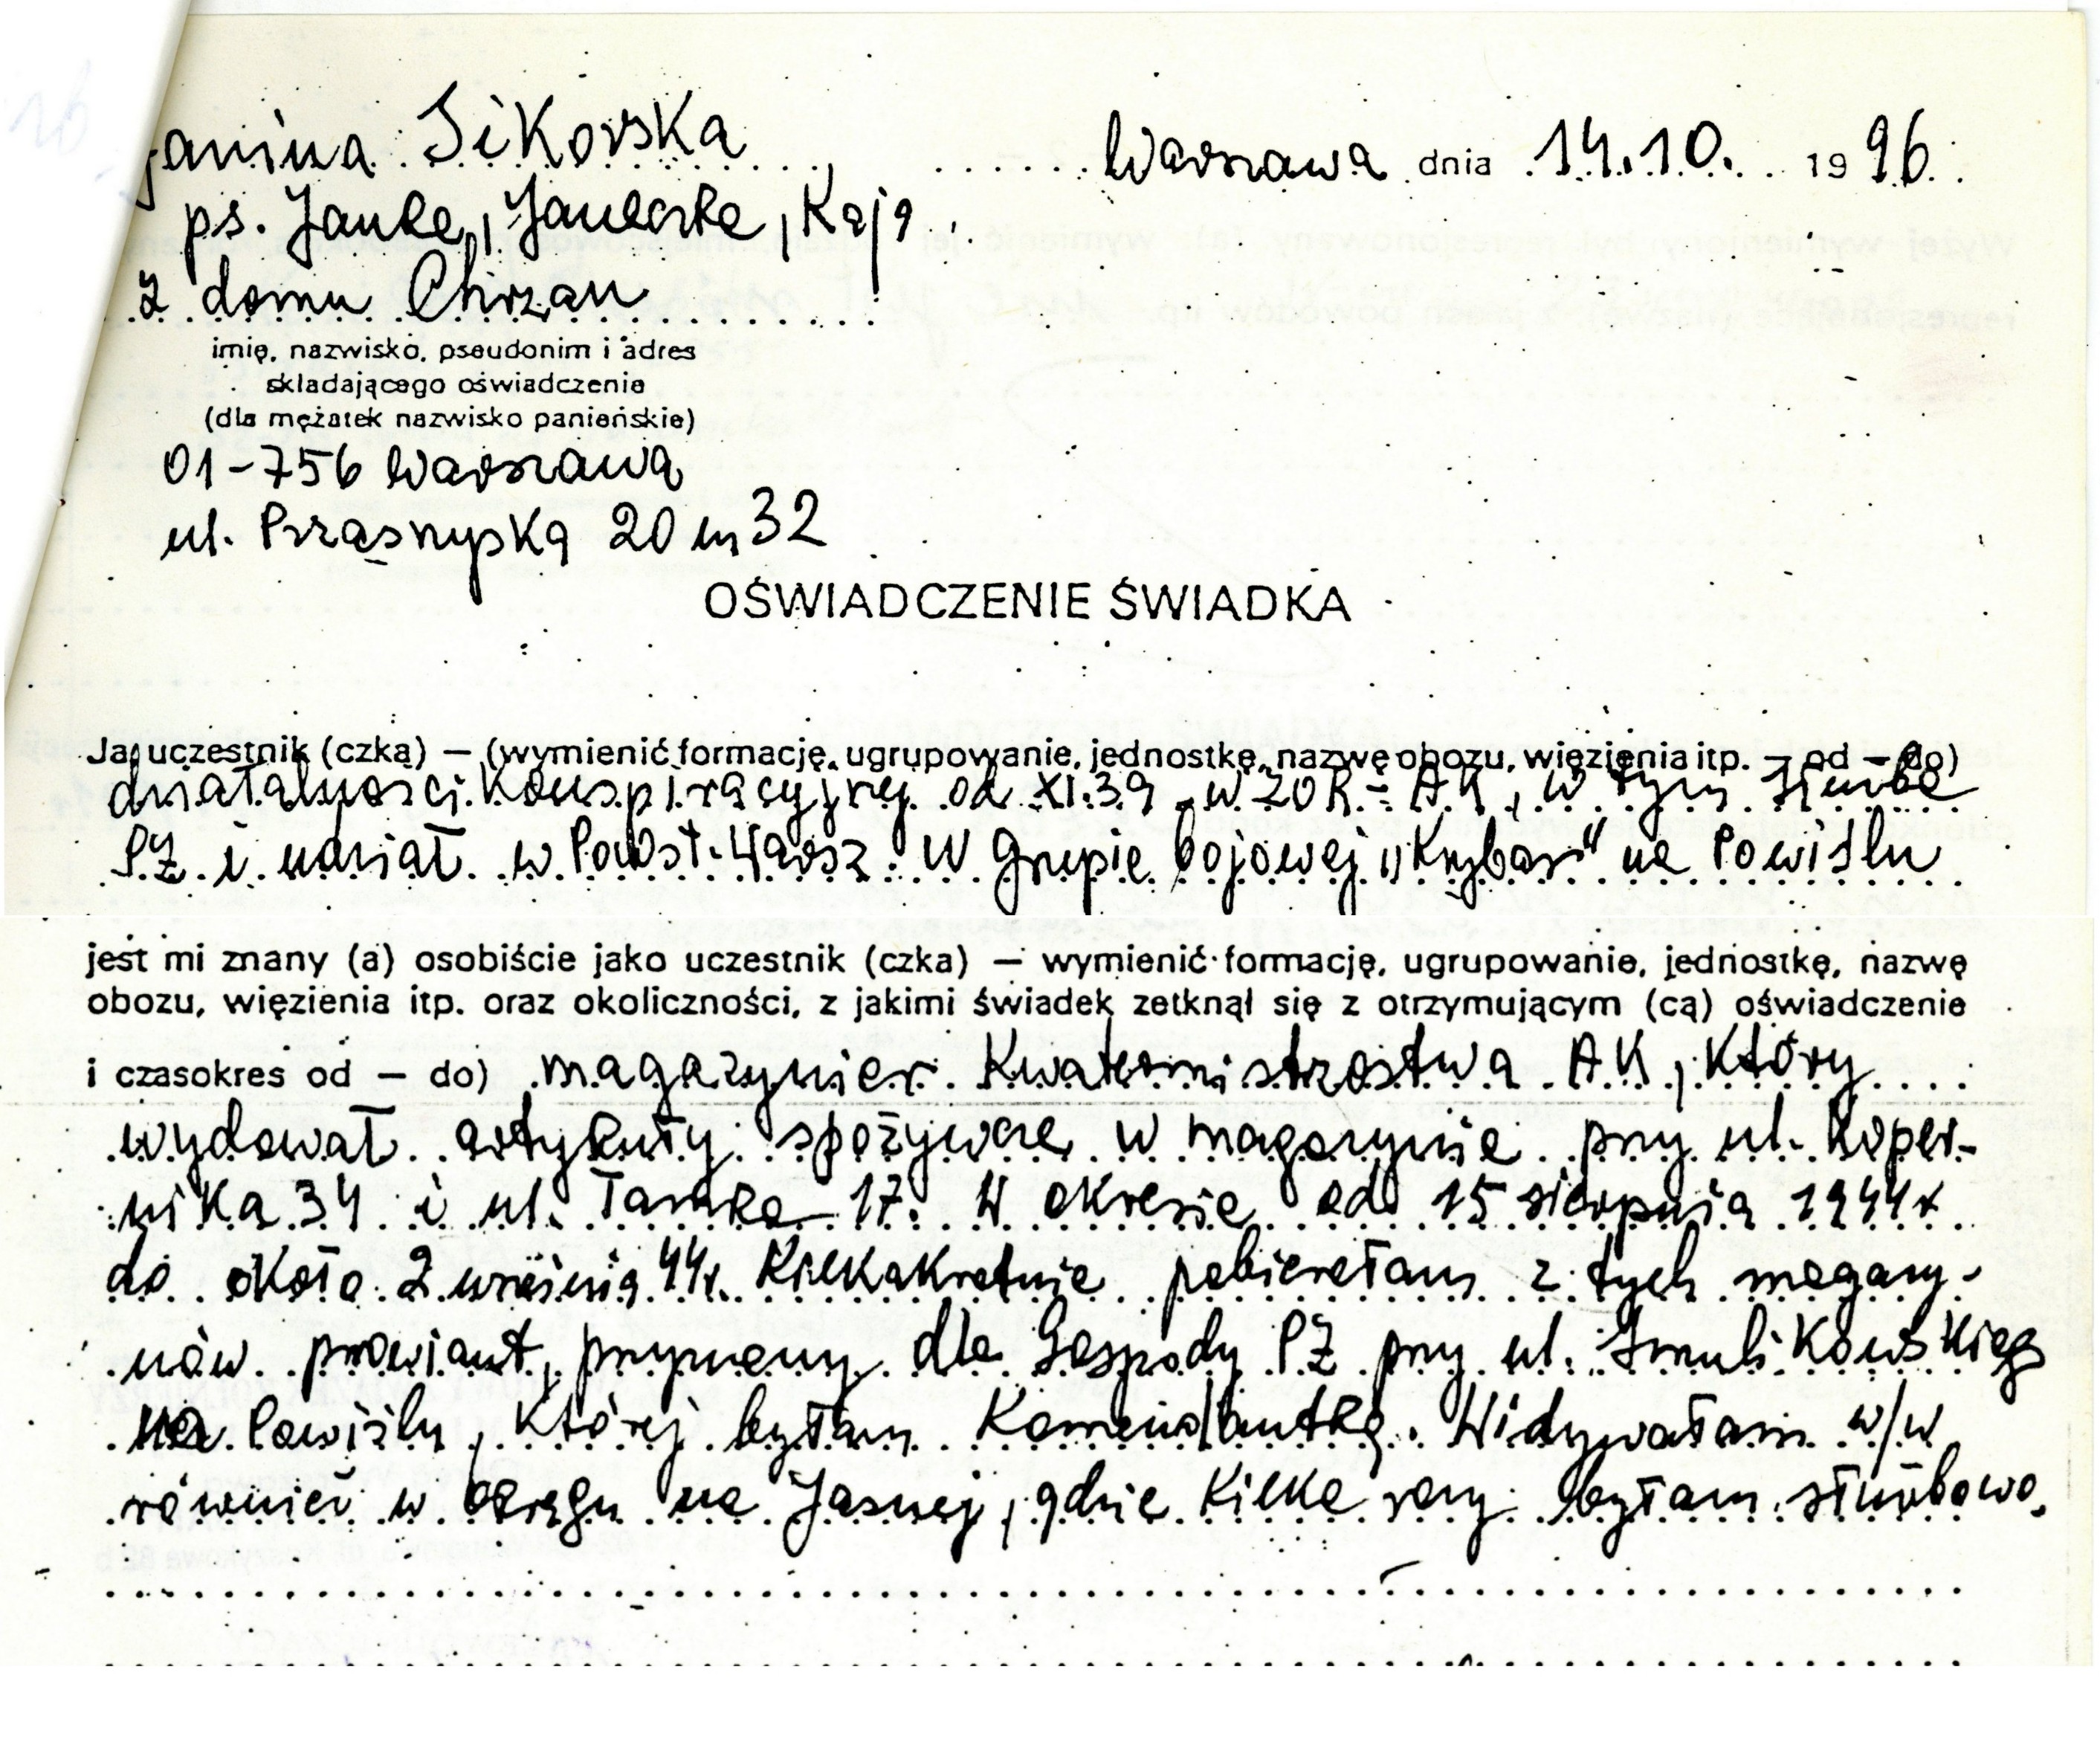 Janina Sikorska
Warszawa dnia 14.10. 1996
ps. Janka, Janeczka, Kaja
z domu Chrzan
imię, nazwisko, pseudonim i adres
składającego oświadczenie
(dla mężatek nazwisko panieńskie)
01-756 Warszawa
ul. Przasnyska 20 m 32
OŚWIADCZENIE ŚWIADKA
Ja, uczestnik (czka) — (wymienić formację, ugrupowanie, jednostkę, nazwę obozu, więzienia itp. — od — do)
działalności konspiracyjnej od XI.39 w ZOR - AK, w tym służba
PŻ i udział w Powst. Warsz. W grupie bojowej "Krybar" na Powiślu
jest mi znany (a) osobiście jako uczestnik (czka) — wymienić formację, ugrupowanie, jednostkę, nazwę
obozu, więzienia itp. oraz okoliczności, z jakimi świadek zetknął się z otrzymującym (cą) oświadczenie
i czasokres od — do) magazynier Kwatermistrzostwa AK, który
wydawał artykuły spożywcze w magazynie przy ul. Koper-
nika 34 i ul. Tamka 17. W okresie od 15 sierpnia 1944 r
do około 2 września 44r. Kilkakrotnie pobierałam z tych magazy-
nów prowiant, przyznany dla Gospody PŻ przy ul. Smulikowskiego
na Powiślu, której byłam Komendantką. Widywałam w/w
również w okręgu na Jasnej, gdzie kilka razy byłam służbowo.